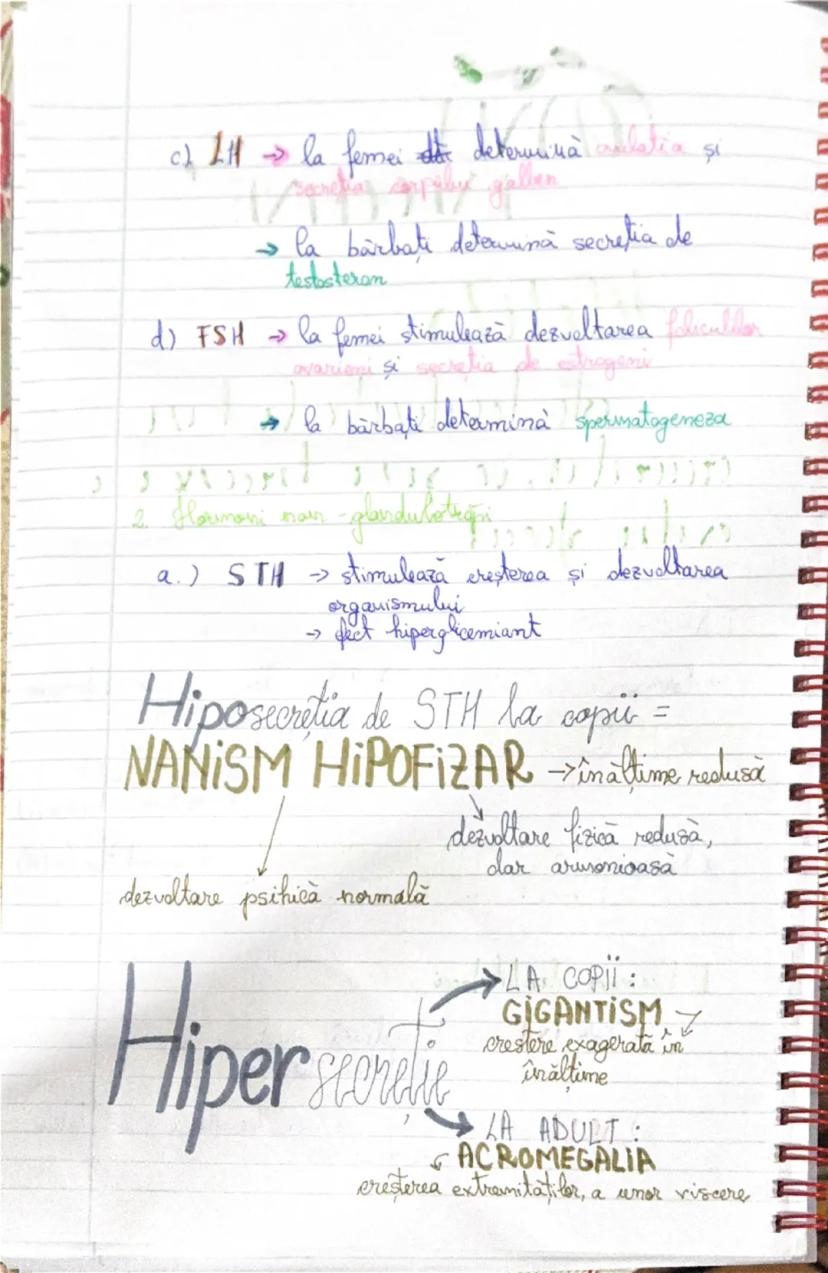 c) LH → la femei determină ovulatia și
secretia corpului galben
→ la bărbați determină secreția de
testosteron
d) FSH → la femei stimulează dezvoltarea foliculilor
ovarieni și secretia de estrogeni
→ la bărbați determină spermatogeneza
2. Hormoni non-glandulotropi
a.) STH → stimulează creșterea și dezvoltarea
organismului
→ efect hiperglicemiant
Hiposecreția de STH la copii =
NANISM HIPOFIZAR → înălțime redusă
dezvoltare fizică redusă,
dar armonioasă
dezvoltare psihică normală
Hipersecreție
→ LA COPII :
GIGANTISM
creștere exagerată în
înălțime
→ LA ADULT :
ACROMEGALIA
creșterea extremităților, a unor viscere